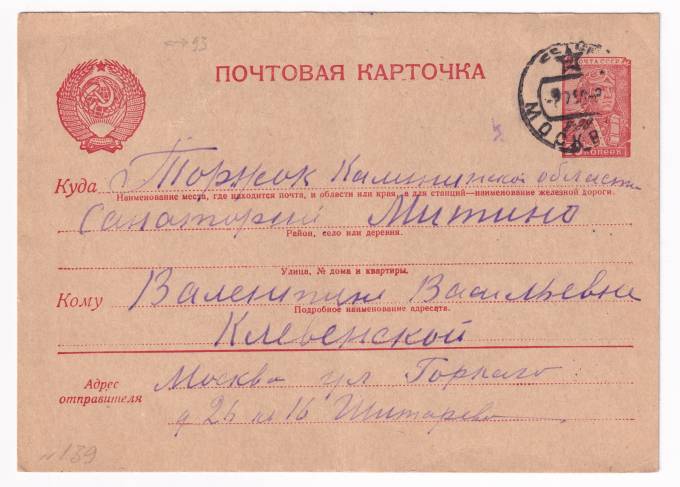 93
ПОЧТОВАЯ КАРТОЧКА
ПОЧТА СССР
МОСКВА
КОПЕЕК
Куда г Торжок Калининской области
Наименование места, где находится почта, и области или края, а для станций—наименование железной дороги.
Санаторий Митино
Район, село или деревня.
Улица, № дома и квартиры.
Кому Валентине Васильевне
Подробное наименование адресата.
Клевенской
Адрес отправителя Москва ул Горького
д 26 кв 16
139